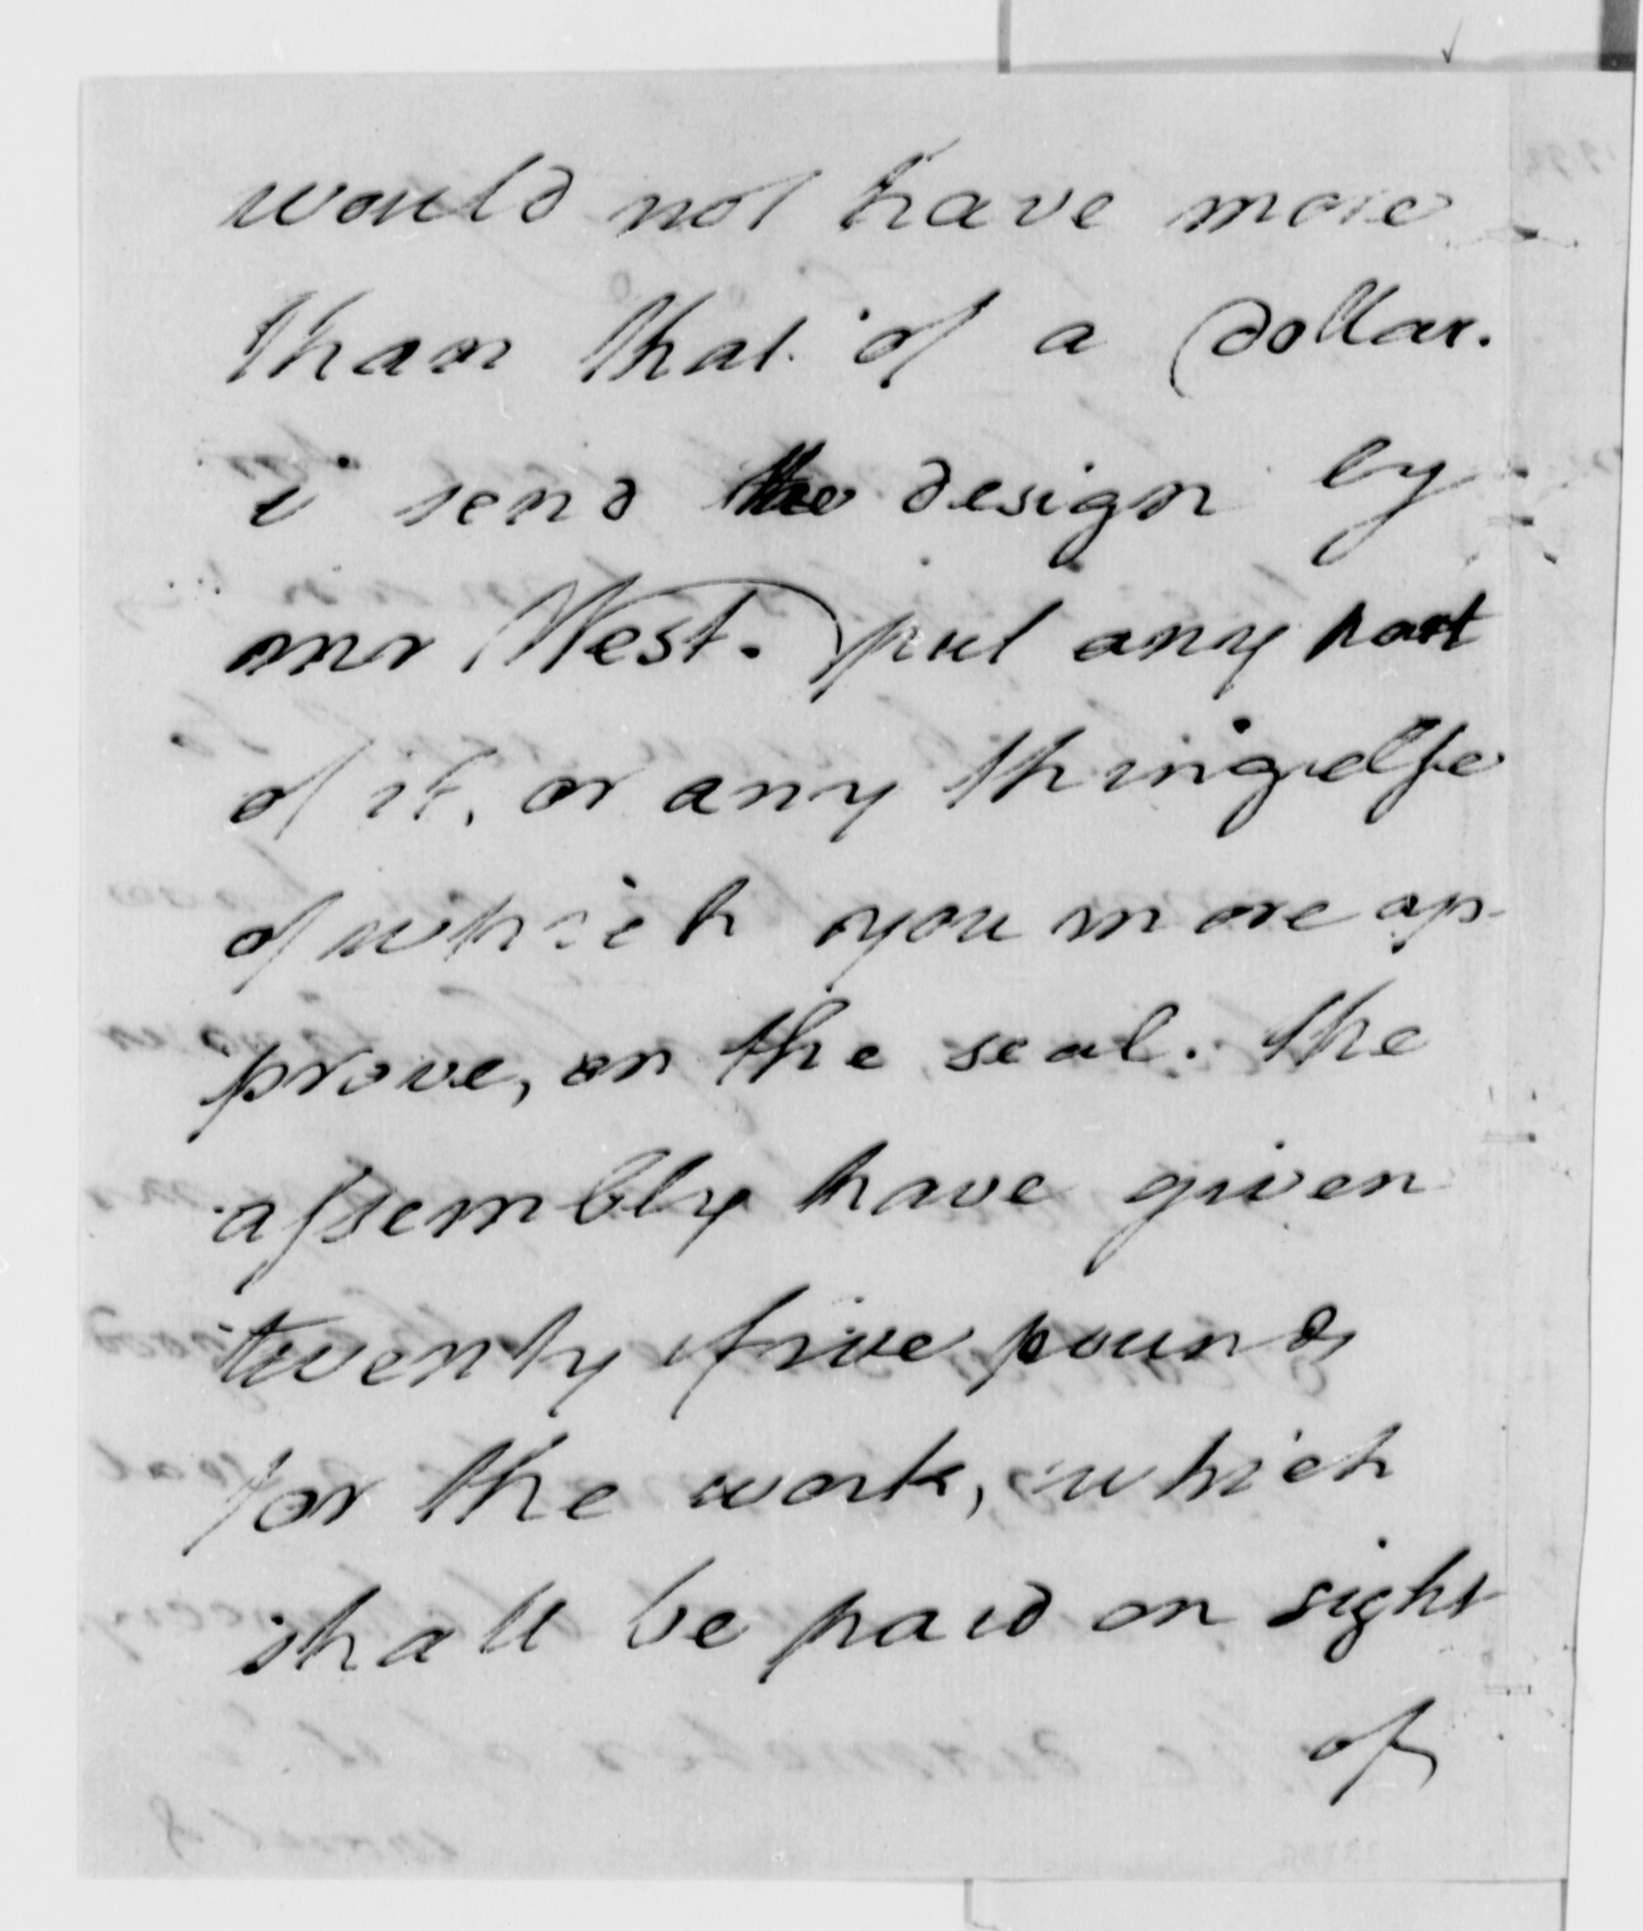 would not have more
than that of a dollar.
i send the design by
mr West. put any part
of it, or any thing else
of which you more ap-
prove, on the seal. the
assembly have given
twenty five pounds
for the work, which
shall be paid on sight
of